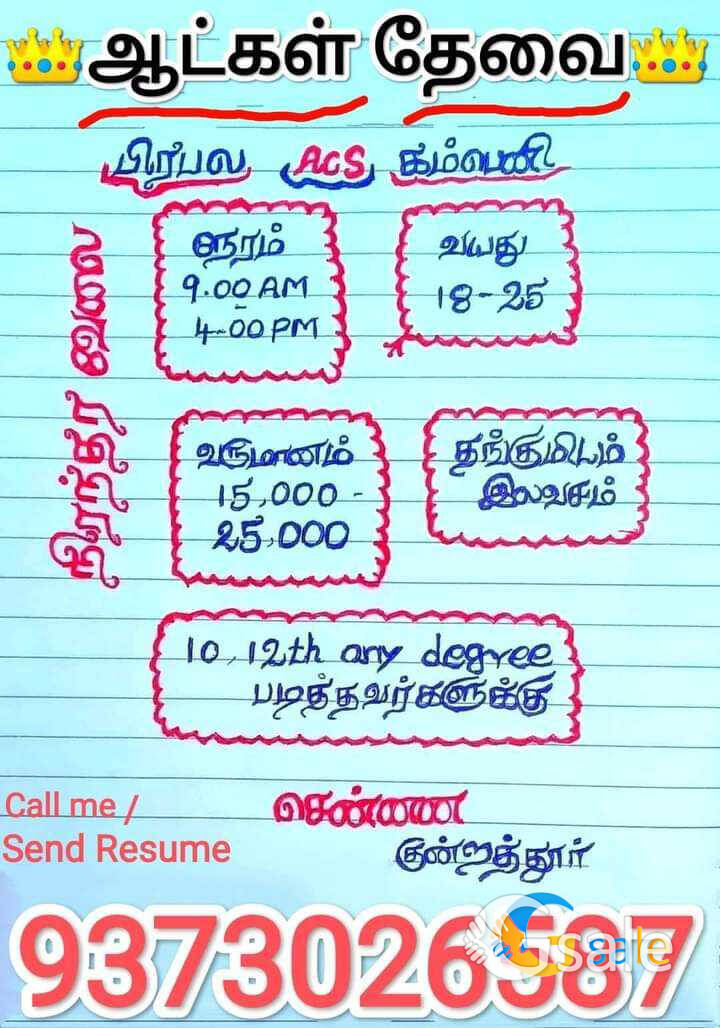 ஆட்கள் தேவை
பிரபல ACS கம்பெணி
நிரந்தர வேலை
நேரம்
9.00 AM
-
4-00 PM
வயது
18-25
வருமானம்
15,000 -
25,000
தங்குமிடம்
இலவசம்
10, 12th any degree
படித்தவர்களுக்கு
Call me /
Send Resume
சென்னை
குன்றத்தூர்
9373026587
Gsale